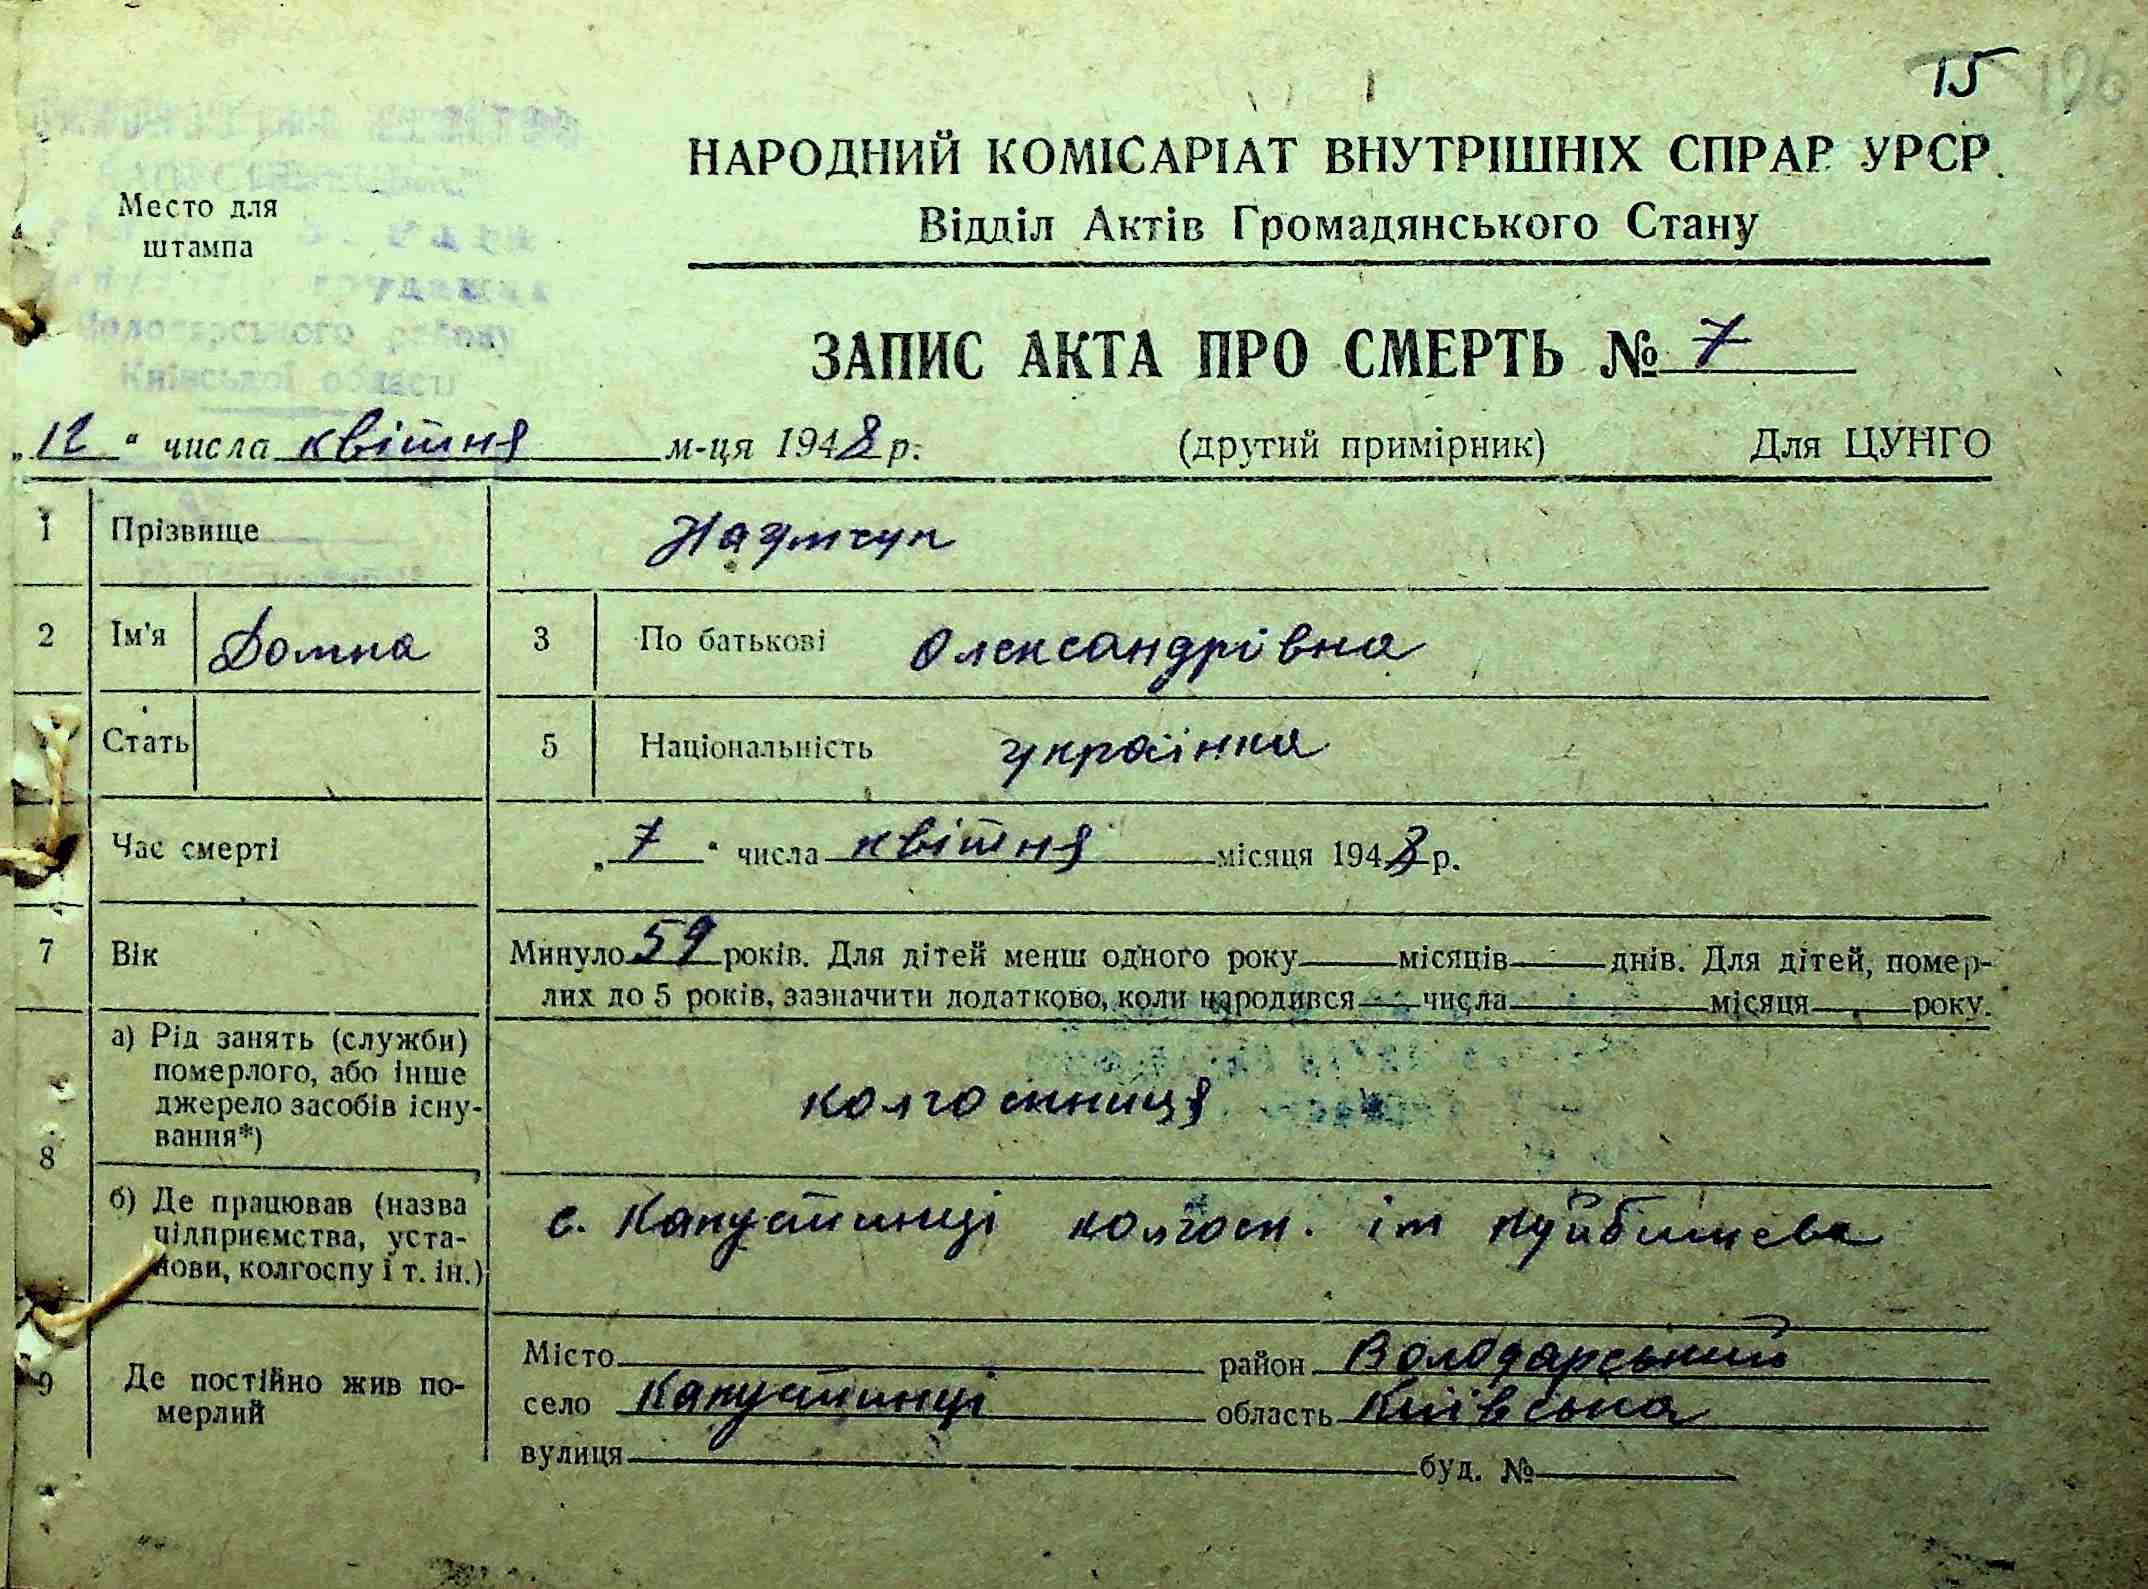 15 196
НАРОДНИЙ КОМІСАРІАТ ВНУТРІШНІХ СПРАР УРСР
Відділ Актів Громадянського Стану
Место для
штампа
Володарського району
Київської області
ЗАПИС АКТА ПРО СМЕРТЬ № 7
„12“ числа квітня м-ця 1948 р. (другий примірник) Для ЦУНГО
1 Прізвище Наумчук
2 Ім'я Домна 3 По батькові Олександрівна
Стать 5 Національність українка
Час смерті „7“ числа квітня місяця 1948 р.
7 Вік Минуло 59 років. Для дітей менш одного року місяців днів. Для дітей, помер-
лих до 5 років, зазначити додатково, коли народився числа місяця року.
8 а) Рід занять (служби)
померлого, або інше
джерело засобів існу-
вання*)
колгоспниця
б) Де працював (назва
підприємства, уста-
нови, колгоспу і т. ін.)
с. Капустинці колгосп. ім Куйбишева
9 Де постійно жив по-
мерлий
Місто район Володарський
село Капустинці область Київська
вулиця буд. №